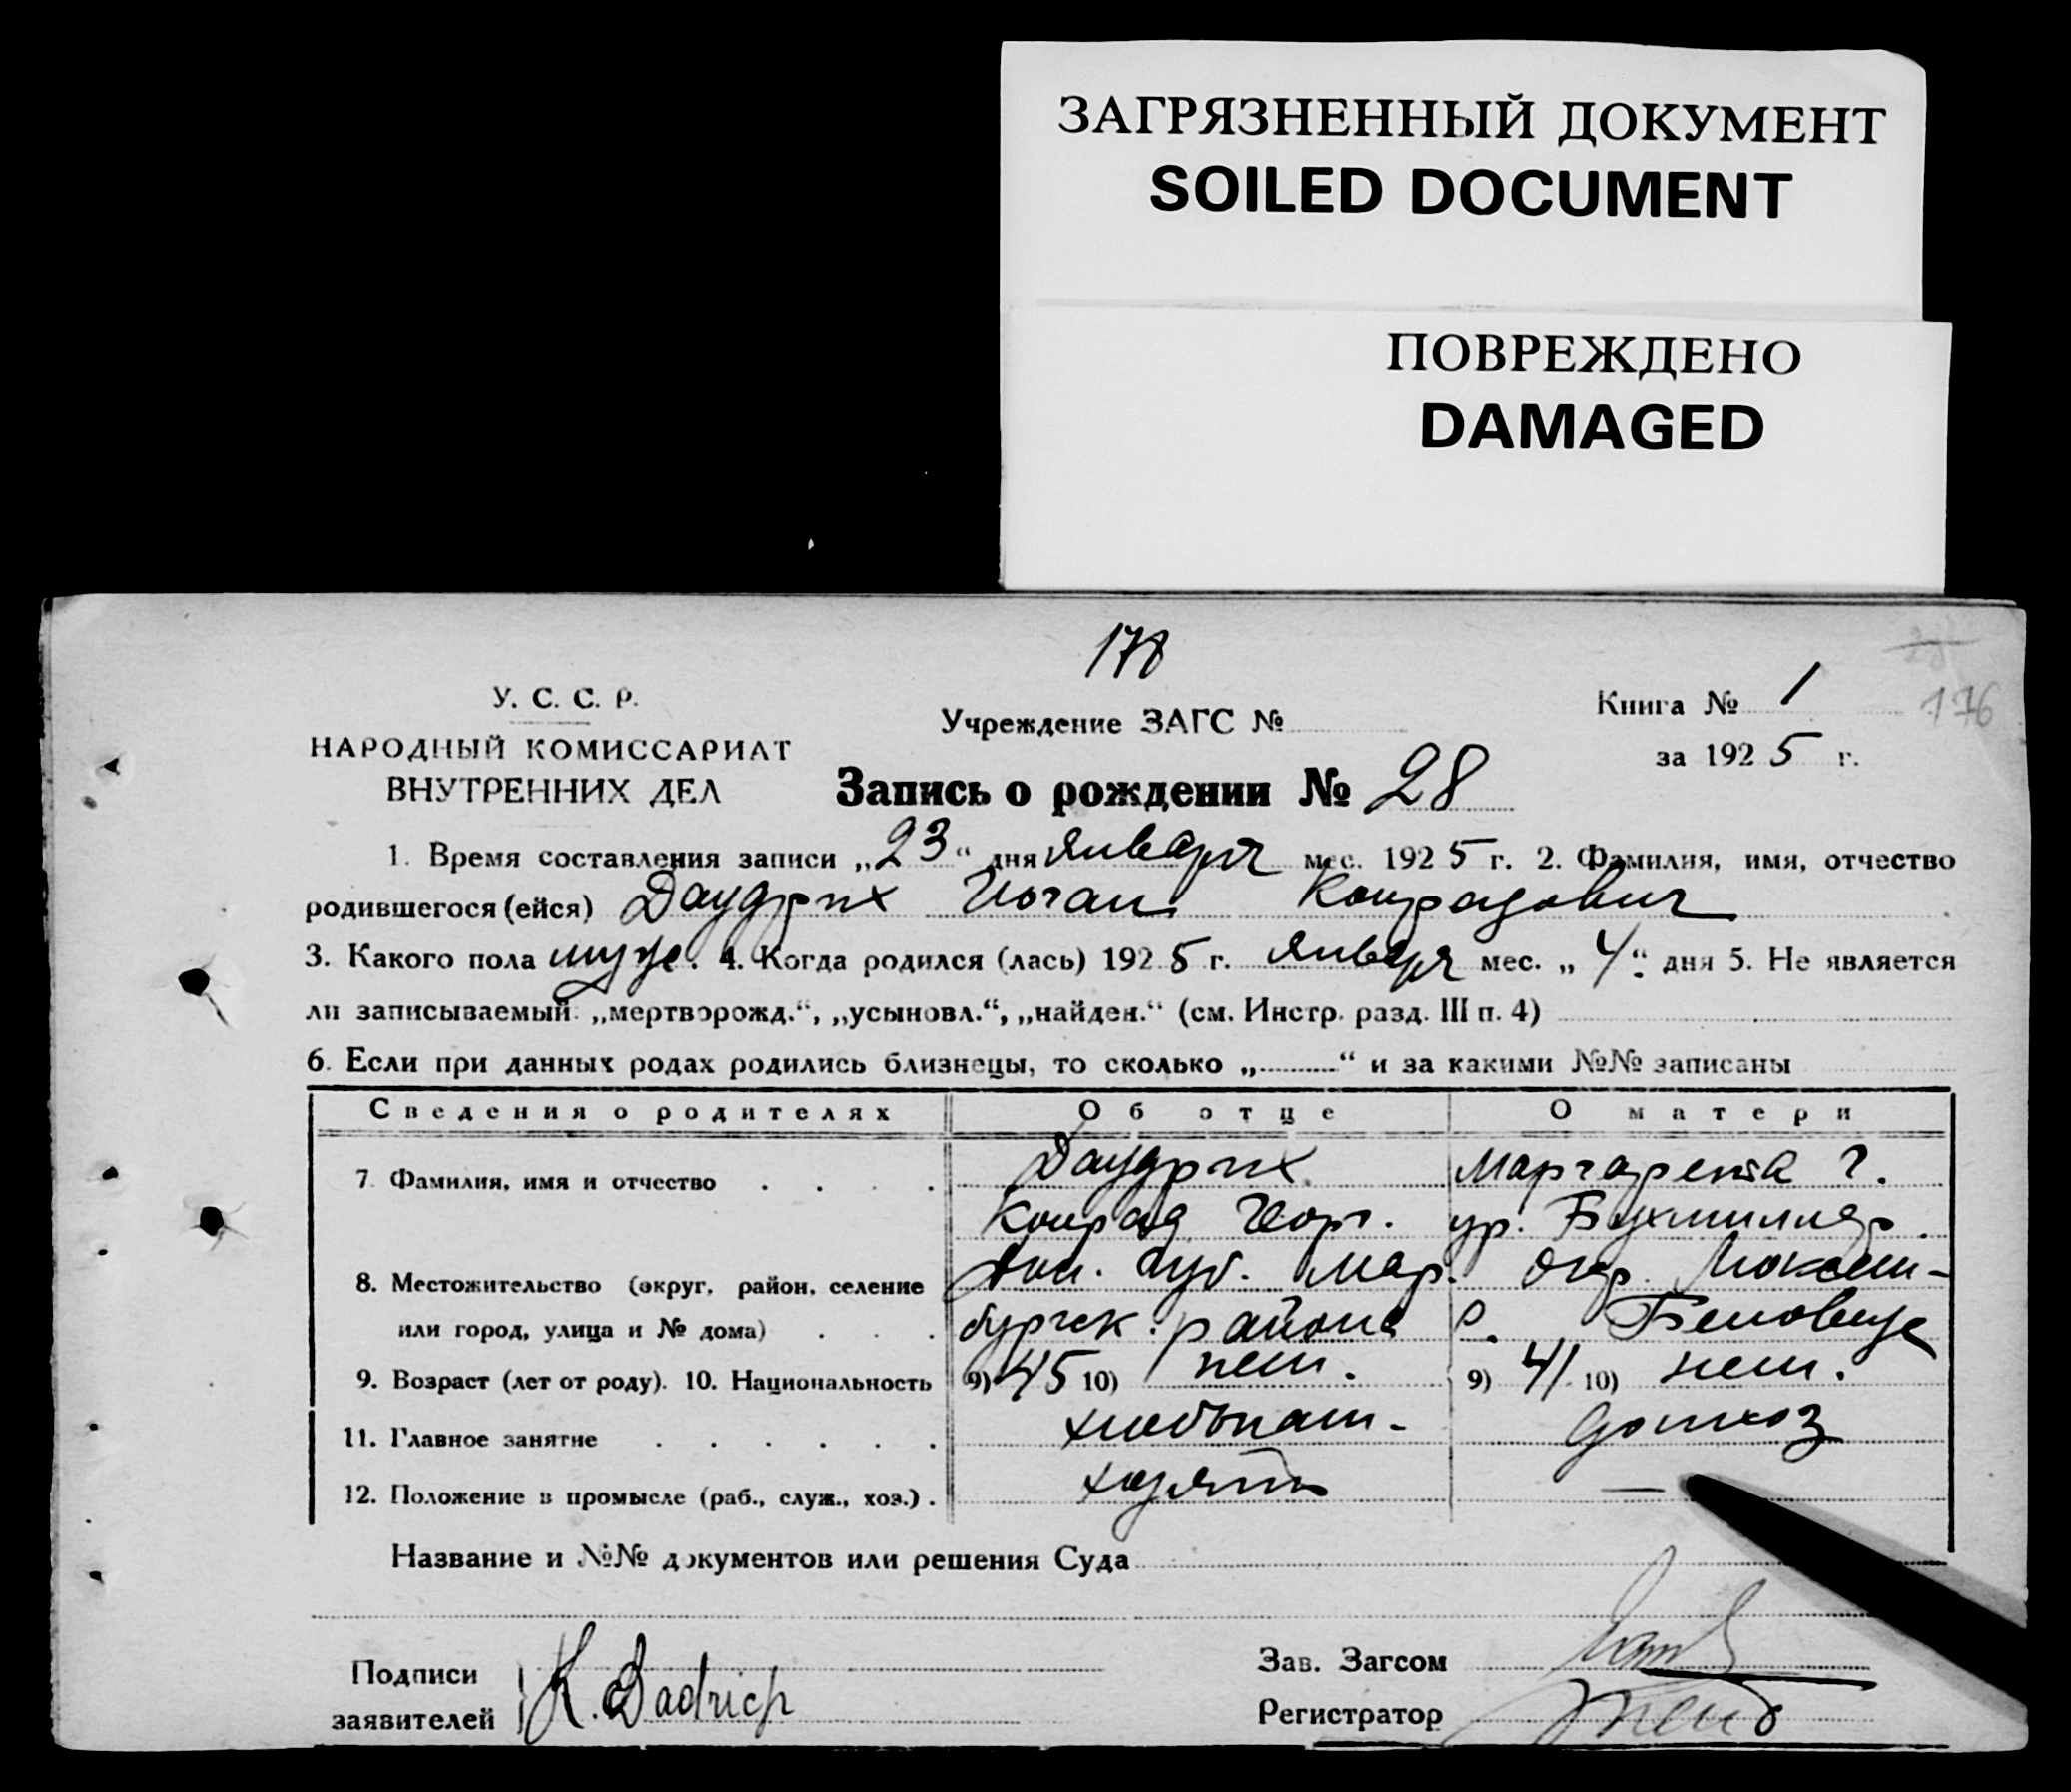 ЗАГРЯЗНЕННЫЙ ДОКУМЕНТ
SOILED DOCUMENT
ПОВРЕЖДЕНО
DAMAGED
178
176
У. С. С. Р.
НАРОДНЫЙ КОМИССАРИАТ
ВНУТРЕННИХ ДЕЛ
Учреждение ЗАГС №
Книга № 1
за 1925 г.
Запись о рождении № 28
1. Время составления записи „23“ дня января мес. 1925 г. 2. Фамилия, имя, отчество
родившегося (ейся) Даудрих Иоган Конрадович
3. Какого пола муж. 4. Когда родился (лась) 1925 г. января мес. „4“ дня 5. Не является
ли записываемый: „мертворожд.“, „усыновл.“, „найден.“ (см. Инстр. разд. III п. 4)
6. Если при данных родах родились близнецы, то сколько „..........“ и за какими №№ записаны
Сведения о родителях Об отце О матери
7. Фамилия, имя и отчество . . . . Даудрих Маргарета Г.
Конрад Георг. ур. Бухмиллер.
8. Местожительство (округ, район, селение Дон. губ. Мар. окр. Люксем-
или город, улица и № дома) . . . бургск. района с.
9. Возраст (лет от роду). 10. Национальность 9) 45 10) нем. 9) 41 10) нем.
11. Главное занятие . . . . . . хлебопаш- домхоз
12. Положение в промысле (раб., служ., хоз.) . хозяин —
Название и №№ документов или решения Суда
Подписи
заявителей K. Dadrich
Зав. Загсом
Регистратор